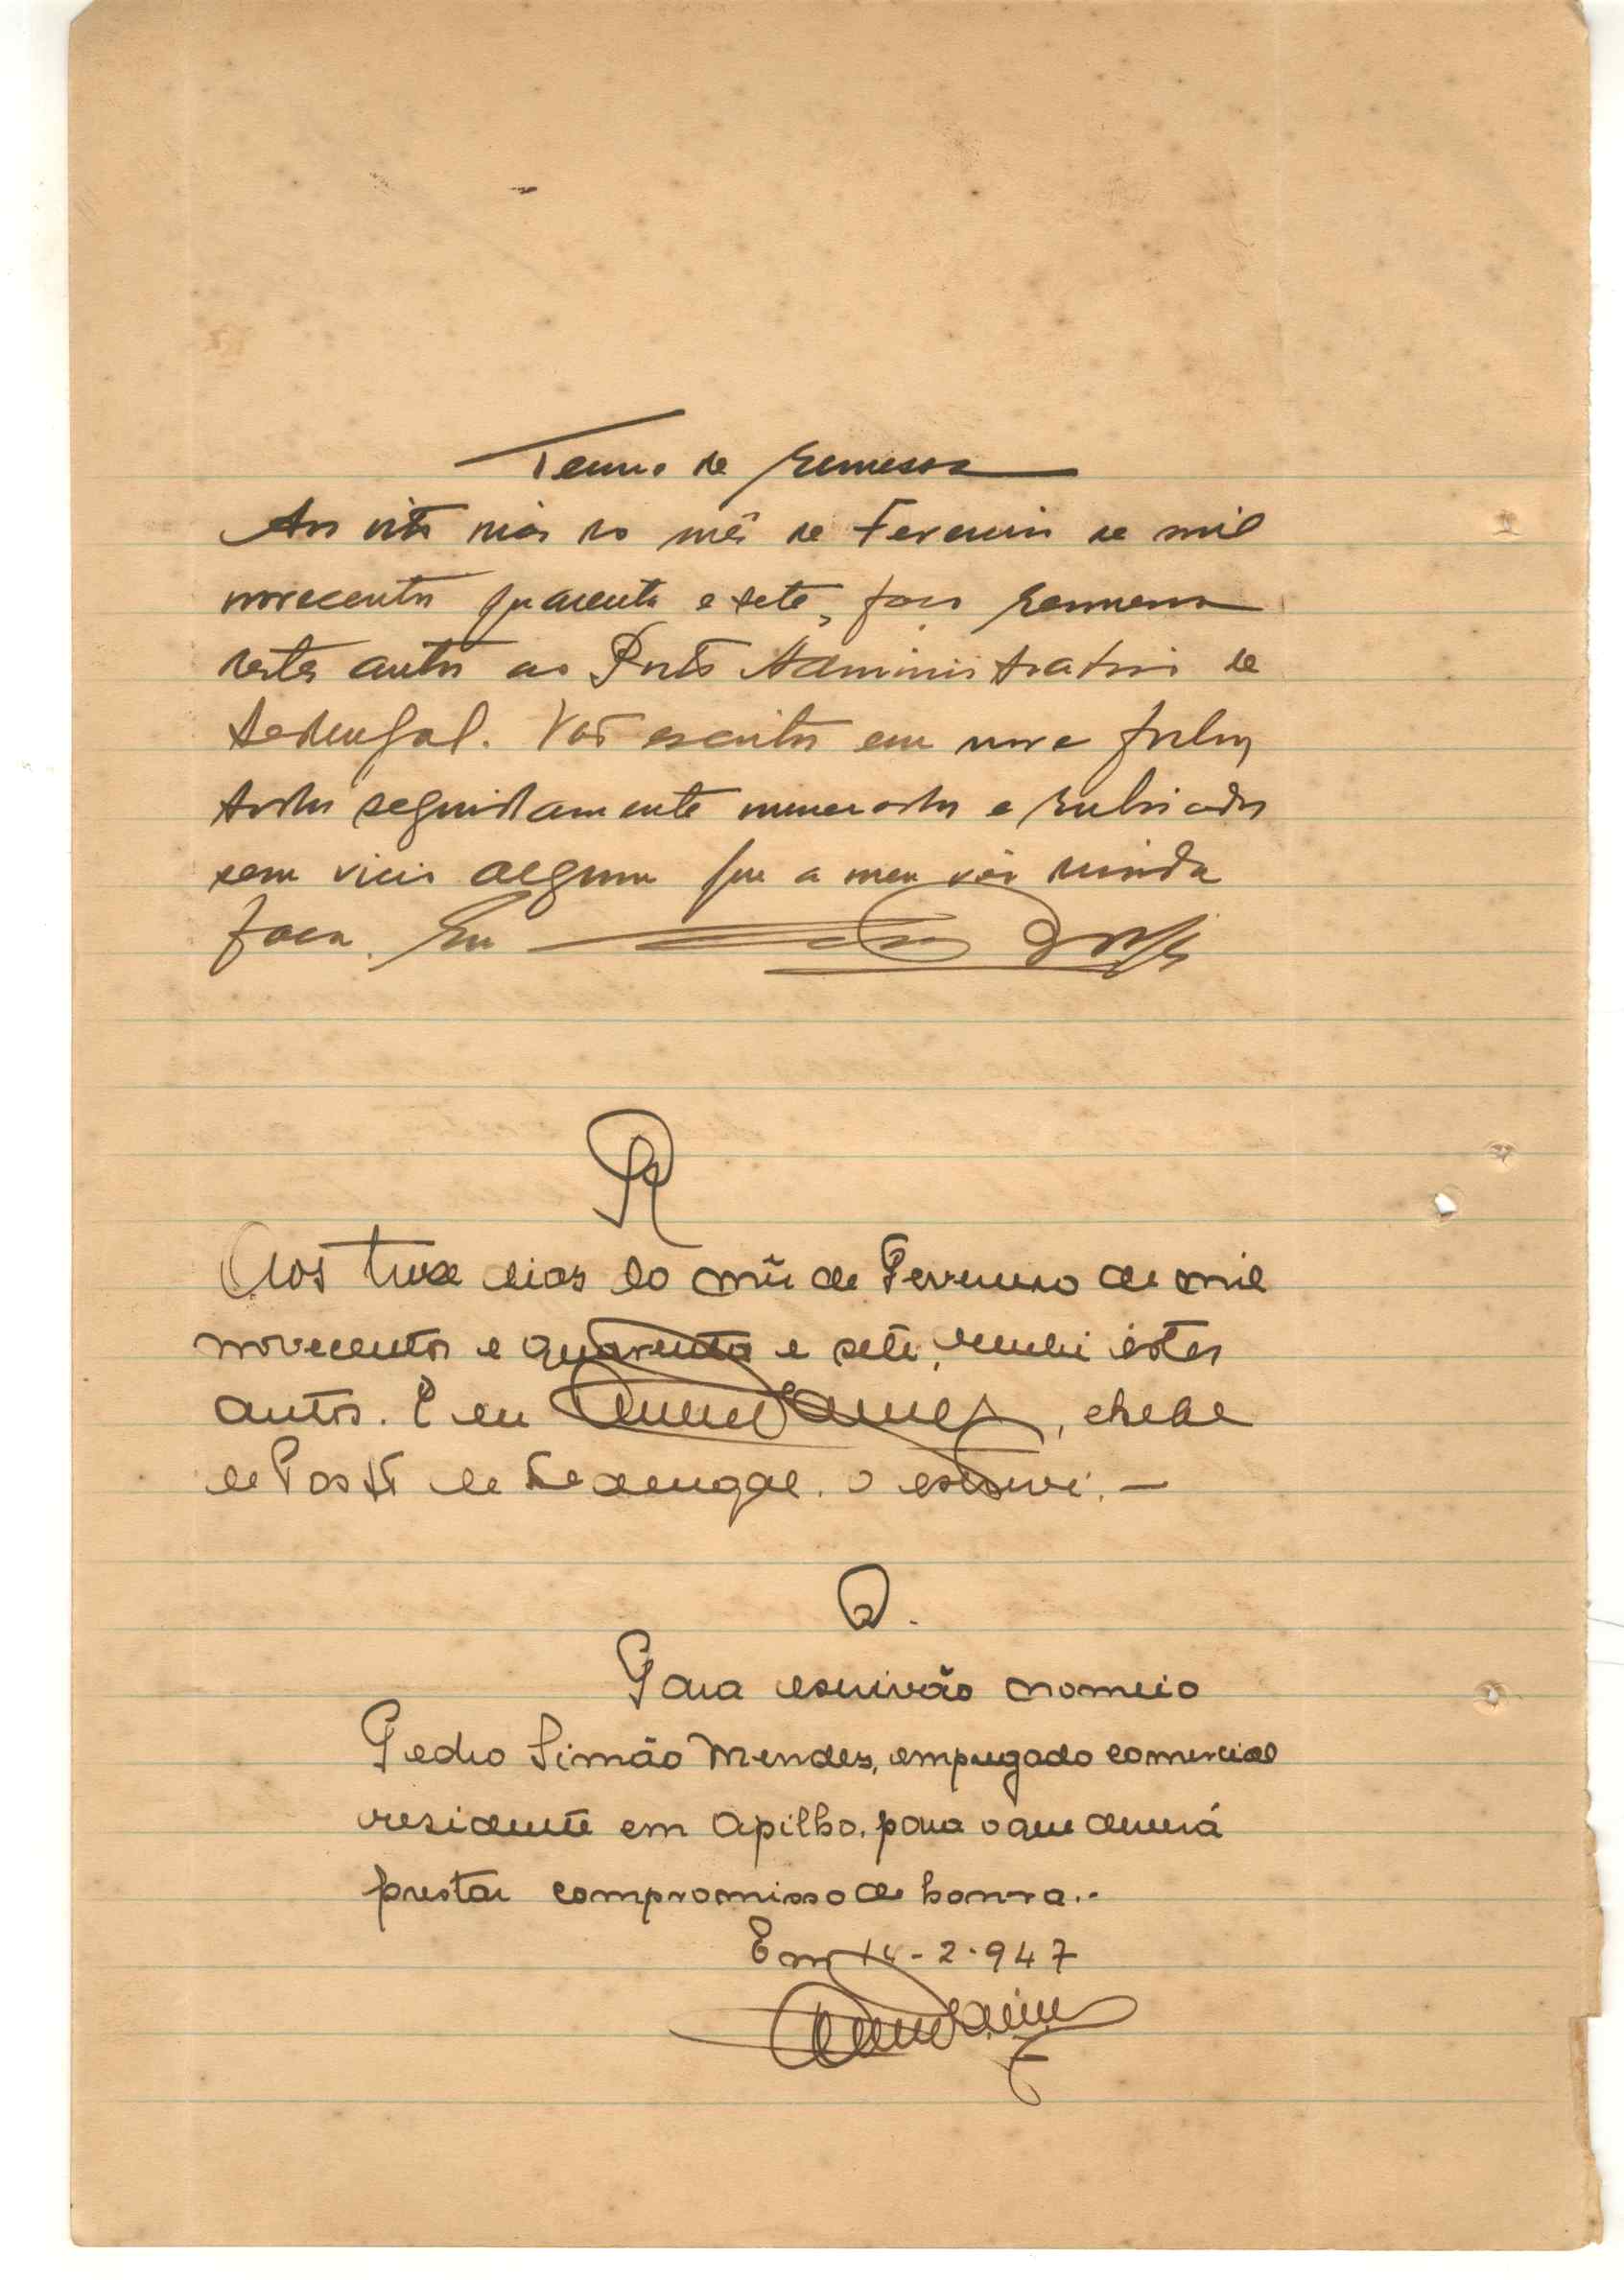 Termo de Remessa
Aos oito dias do mês de Fevereiro de mil
novecentos quarenta e sete, faço Remessa
destes autos ao Posto Administrativo de
Sedengal. Vão escritos em nove folhas
todas seguidamente numeradas e rubricadas
sem vicio algum que a meu vêr duvida
faça. Eu
R
Aos treze dias do mês de Fevereiro de mil
novecentos e quarenta e sete, recebi êstes
autos. E eu , chefe
de Posto de Sedengal, o escrevi. —
D.
Para escrivão nomeio
Pedro Simão Mendes, empregado comercial
residente em Apilho, para o que deverá
prestar compromisso de honra.-
Em 14-2-947